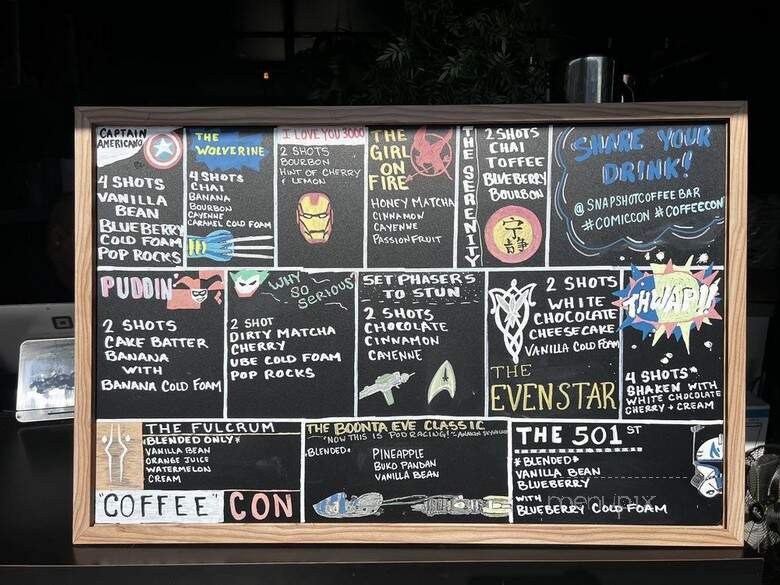 CAPTAIN
AMERICANO
4 SHOTS
VANILLA
BEAN
BLUEBERRY
COLD FOAM
POP ROCKS
THE
WOLVERINE
4 SHOTS
CHAI
BANANA
BOURBON
CAYENNE
CARAMEL COLD FOAM
I LOVE YOU 3000
2 SHOTS
BOURBON
HINT OF CHERRY
& LEMON
THE
GIRL
ON
FIRE
HONEY MATCHA
CINNAMON
CAYENNE
PASSIONFRUIT
THE SERENITY
2 SHOTS
CHAI
TOFFEE
BLUEBERRY
BOURBON
SHARE YOUR
DRINK!
@SNAPSHOTCOFFEEBAR
#COMICCON #COFFEECON
PUDDIN
2 SHOTS
CAKE BATTER
BANANA
WITH
BANANA COLD FOAM
WHY
SO
SERIOUS
2 SHOT
DIRTY MATCHA
CHERRY
UBE COLD FOAM
POP ROCKS
SET PHASER'S
TO STUN
2 SHOTS
CHOCOLATE
CINNAMON
CAYENNE
2 SHOTS
WHITE
CHOCOLATE
CHEESECAKE
VANILLA COLD FOAM
THE
EVENSTAR
THWAP!!
4 SHOTS*
SHAKEN WITH
WHITE CHOCOLATE
CHERRY + CREAM
THE FULCRUM
*BLENDED ONLY*
VANILLA BEAN
ORANGE JUICE
WATERMELON
CREAM
"COFFEE" CON
THE BOONTA EVE CLASSIC
"NOW THIS IS PODRACING!"
*BLENDED*
PINEAPPLE
BUKO PANDAN
VANILLA BEAN
THE 501ST
*BLENDED*
VANILLA BEAN
BLUEBERRY
WITH
BLUEBERRY COLD FOAM
menupix